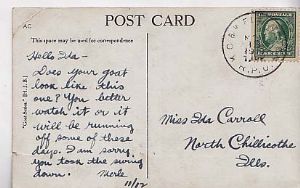 AC
POST CARD
This space may be used for correspondence
Hello Ida—
Does your goat
look like this
one? You better
watch it or it
will be running
off some of those
days. I'm sorry
you took the swing
down. Merle
11/12
Miss Ida Carroll
North Chillicothe
Ills.
R.P.O.